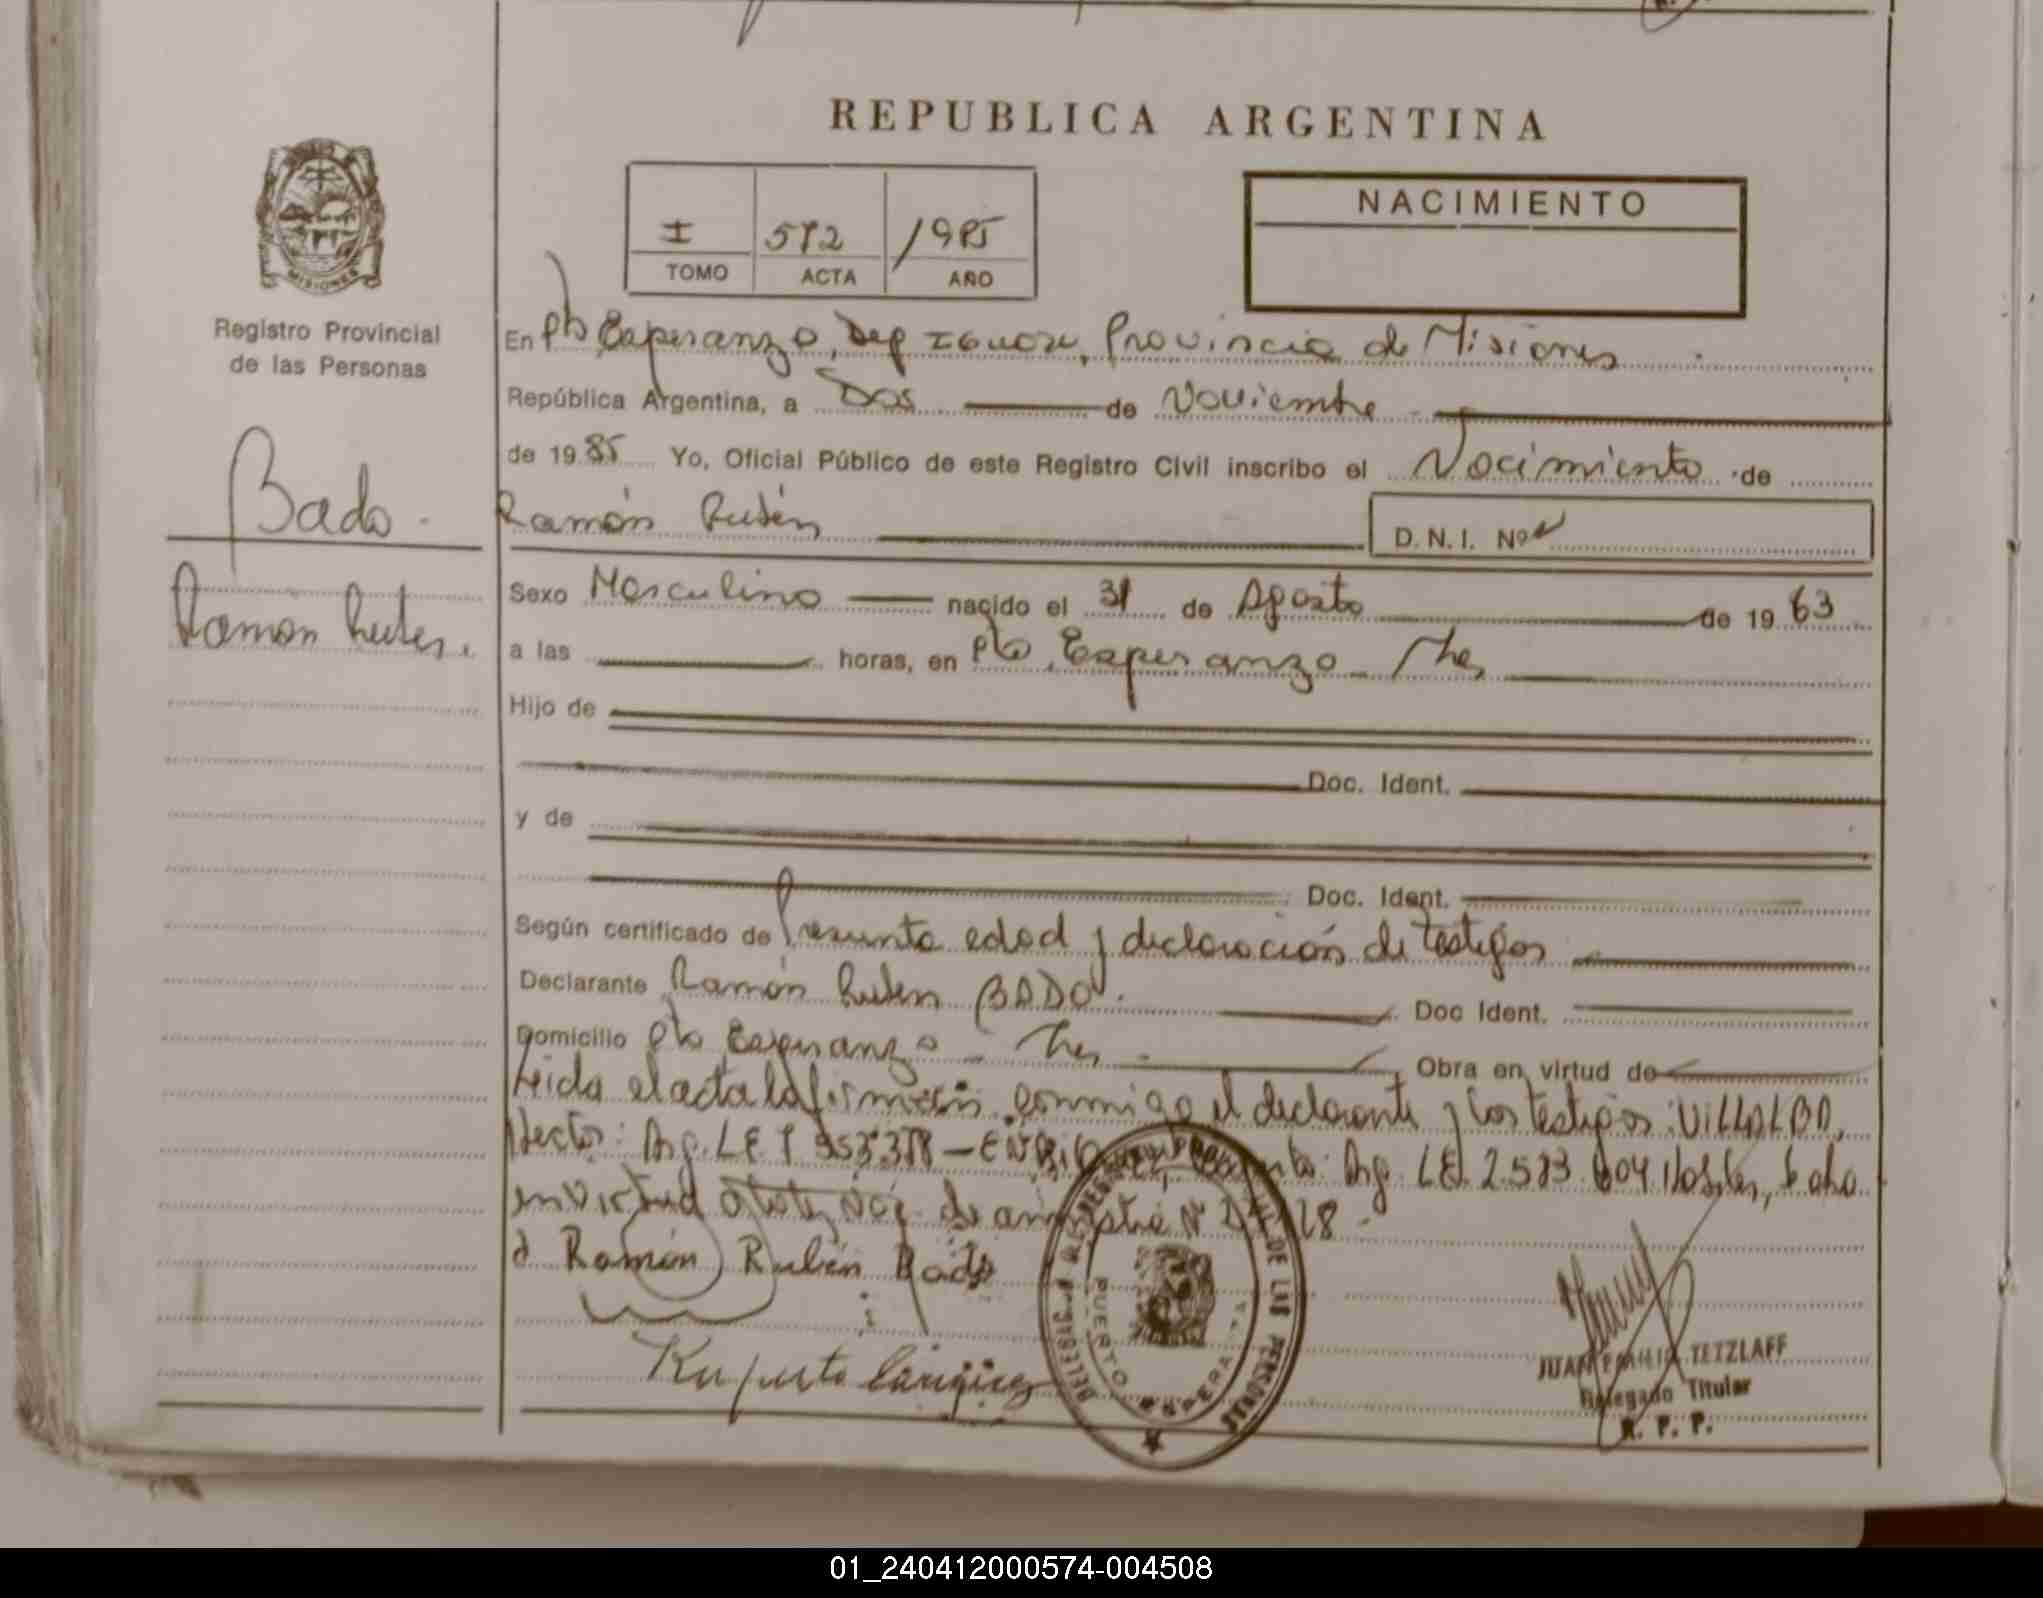 REPUBLICA ARGENTINA
I 572 1985
TOMO ACTA AÑO
NACIMIENTO
MISIONES
Registro Provincial
de las Personas
Bado.
Ramón Ruben.
En Pto Esperanza, Dep Iguazu, Provincia de Misiones
República Argentina, a Dos de Noviembre
de 1985 Yo, Oficial Público de este Registro Civil inscribo el Nacimiento de
Ramón Rubén
D.N.I. Nº
Sexo Masculino nacido el 31 de Agosto de 1963
a las horas, en Pto. Esperanza - Mnes
Hijo de
Doc. Ident.
y de
Doc. Ident.
Según certificado de Presunta edad y declaración de testigos
Declarante Ramón Ruben BADO. Doc Ident.
Domicilio Pto Esperanza - Mnes - Obra en virtud de
Leida el acta la firman conmigo el declarante y los testigos: VILLALBA,
Hector: Arg. L.E. Arg. L.E. 2.583.604
en virtud de amnistia Nº
Ramón Rubén Bado
Ruperto
DELEGACION REGISTRO PROVINCIAL DE LAS PERSONAS
PUERTO ESPERANZA
JUAN EMILIO TETZLAFF
Delegado Titular
R. P. P.
01_240412000574-004508